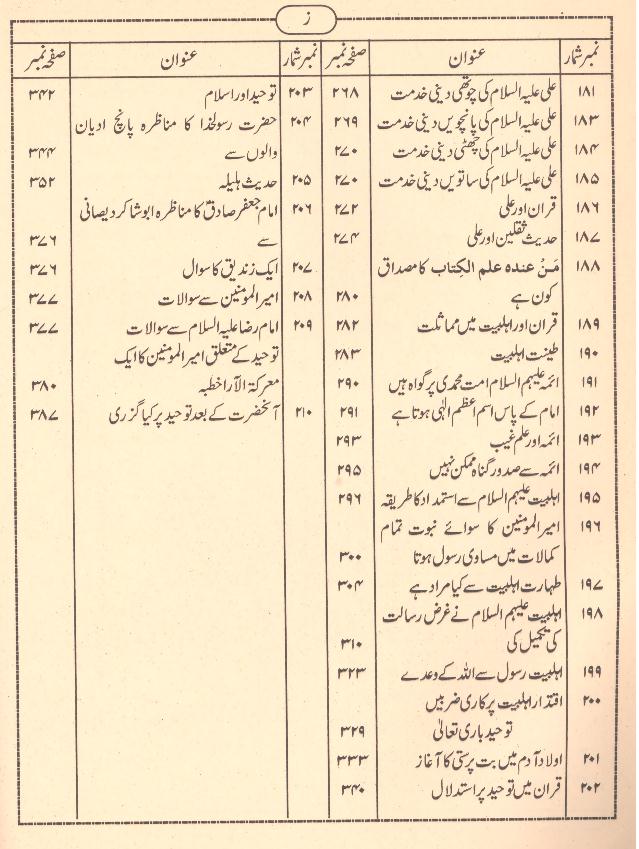 ز
نمبر شمار عنوان صفحہ نمبر
۱۸۱ علی علیہ السلام کی چوتھی دینی خدمت ۲۶۸
۱۸۳ علی علیہ السلام کی پانچویں دینی خدمت ۲۶۹
۱۸۴ علی علیہ السلام کی چھٹی دینی خدمت ۲۷۰
۱۸۵ علی علیہ السلام کی ساتویں دینی خدمت ۲۷۰
۱۸۶ قران اور علی ۲۷۲
۱۸۷ حدیث ثقلین اور علی ۲۷۴
۱۸۸ مَنْ عندہ علم الکِتاب کا مصداق
کون ہے ۲۸۰
۱۸۹ قران اور اہلبیت میں مماثلت ۲۸۲
۱۹۰ طینت اہلبیت ۲۸۳
۱۹۱ ائمہ علیہم السلام امت محمدی پر گواہ ہیں ۲۹۰
۱۹۲ امام کے پاس اسم اعظم الٰہی ہوتا ہے ۲۹۱
۱۹۳ ائمہ اور علم غیب ۲۹۳
۱۹۴ ائمہ سے صدور گناہ ممکن نہیں ۲۹۵
۱۹۵ اہلبیت علیہم السلام سے استمداد کا طریقہ ۲۹۶
۱۹۶ امیر المومنین کا سوائے نبوت تمام
کمالات میں مساوی رسول ہوتا ۳۰۰
۱۹۷ طہارت اہلبیت سے کیا مراد ہے ۳۰۴
۱۹۸ اہلبیت علیہم السلام نے غرض رسالت
کی تکمیل کی ۳۱۰
۱۹۹ اہلبیت رسول سے اللہ کے وعدے ۳۲۳
۲۰۰ اقتدار اہلبیت پر کاری ضربیں
توحید باری تعالیٰ ۳۲۹
۲۰۱ اولاد آدم میں بت پرستی کا آغاز ۳۳۳
۲۰۲ قران میں توحید پر استدلال ۳۴۰
نمبر شمار عنوان صفحہ نمبر
۲۰۳ توحید اور اسلام ۳۴۲
۲۰۴ حضرت رسولخدا کا مناظرہ پانچ ادیان
والوں سے ۳۴۴
۲۰۵ حدیث ہلیلہ ۳۵۲
۲۰۶ امام جعفر صادقؑ کا مناظرہ ابوشاکر دیصانی
سے ۳۷۶
۲۰۷ ایک زندیق کا سوال ۳۷۶
۲۰۸ امیر المومنین سے سوالات ۳۷۷
۲۰۹ امام رضا علیہ السلام سے سوالات ۳۷۷
توحید کے متعلق امیر المومنین کا ایک
معرکۃ الآرا خطبہ ۳۸۰
۲۱۰ آنحضرت کے بعد توحید پر کیا گزری ۳۸۷